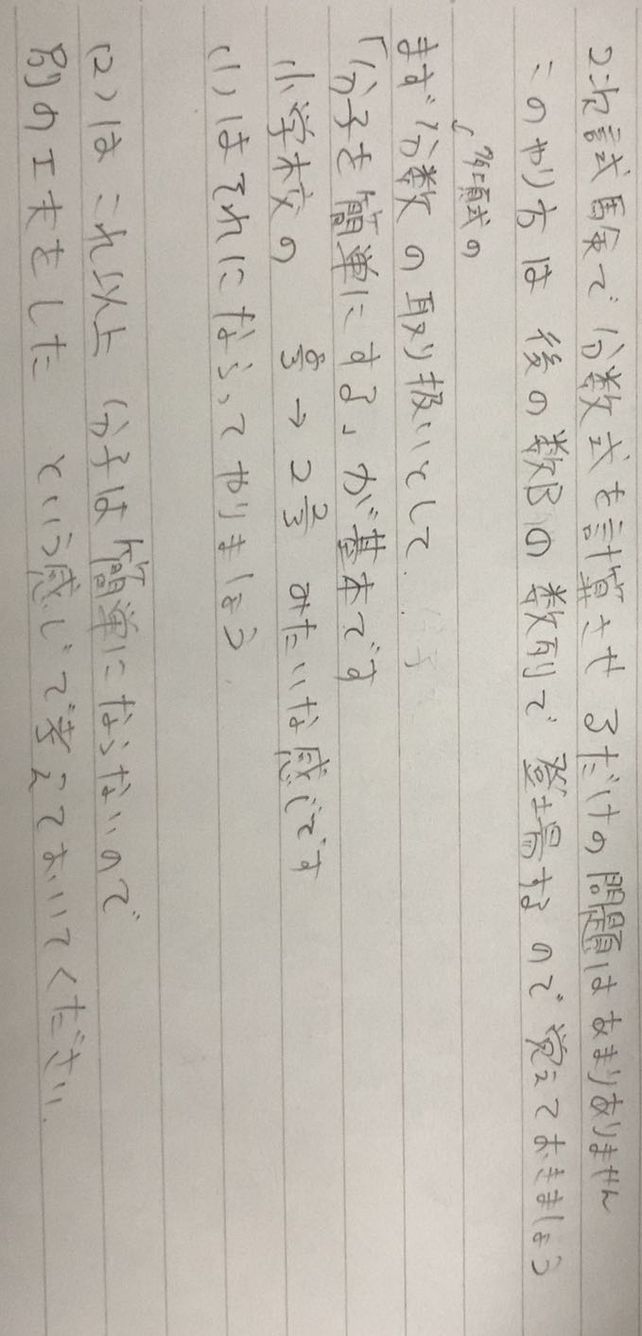 2次試験で分数式を計算させるだけの問題はあまりありません
このやり方は後の数Bの数列で登場するので覚えておきましょう
多項式の
まず分数の取り扱いとして
「分子を簡単にする」が基本です
小学校の 8/3 → 2 2/3 みたいな感じです
(1)はそれにならってやりましょう
(2)はこれ以上分子は簡単にならないので
別の工夫をした という感じで考えておいてください.